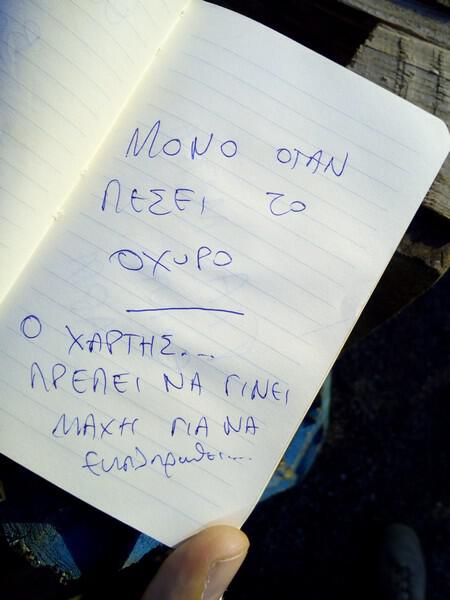 ΜΟΝΟ ΟΤΑΝ
ΠΕΣΕΙ ΤΟ
ΟΧΥΡΟ
Ο ΧΑΡΤΗΣ...
ΠΡΕΠΕΙ ΝΑ ΓΙΝΕΙ
ΜΑΧΗ ΓΙΑ ΝΑ